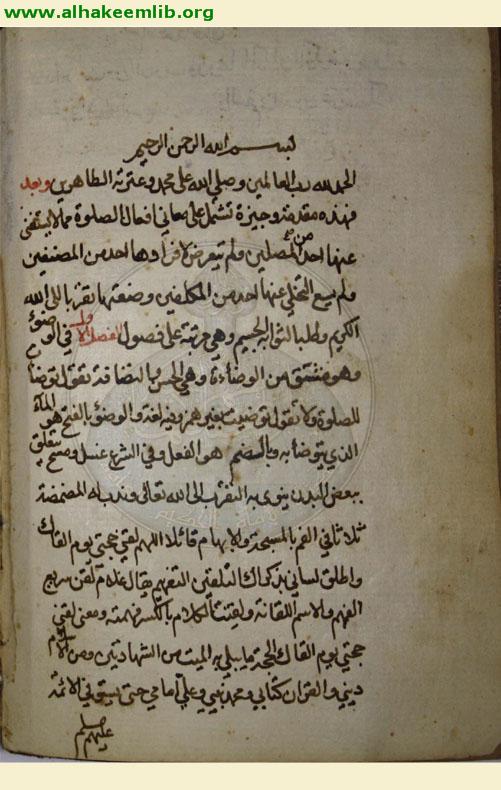 www.alhakeemlib.org
بسم الله الرحمن الرحيم
الحمد لله رب العالمين وصلى الله على محمد وعترته الطاهرين وبعد
فهذه مقدمة وجيزة تشتمل على معاني افعال الصلوة مما لا يستغنى
عنها احد من المصلين ولم يتعرض لافرادها احد من المصنفين
ولم يسع التخلي عنها احد من المكلفين وضعتها تقربا الى الله
الكريم وطلبا لثوابه الجسيم وهي مرتبة على فصول الفصل الاول في الوضوء
وهو مشتق من الوضاءة وهي الحسن والنضافة تقول توضأت
للصلوة ولا تقول توضيت بغير همز وفيه لغة والوضوء بالفتح هو الماء
الذي يتوضأ به وبالضم هو الفعل وفي الشرع غسل ومسح يتعلق
ببعض البدن ينوى به التقرب الى الله تعالى وندب له المضمضة
ثلاثا في الفم بالمسبحة والابهام قائلا اللهم لقني حجتي يوم القاك
واطلق لساني بذكراك التلقين التفهيم يقال غلام لقن سريع
الفهم والاسم اللقانة ولقنت الكلام بالكسر فهمته ومعنى لقني
حجتي يوم القاك الحجة ما يلبي به الميت من الشهادتين ومن الاسلام
ديني والقران كتابي ومحمد نبيي وعلي امامي حتى يستوفي الائمة
عليهم